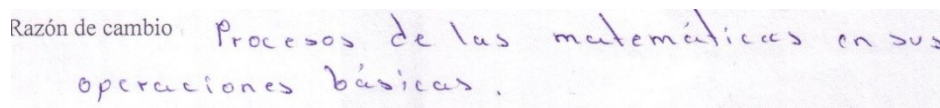 Razón de cambio Procesos de las matemáticas en sus
operaciones básicas.